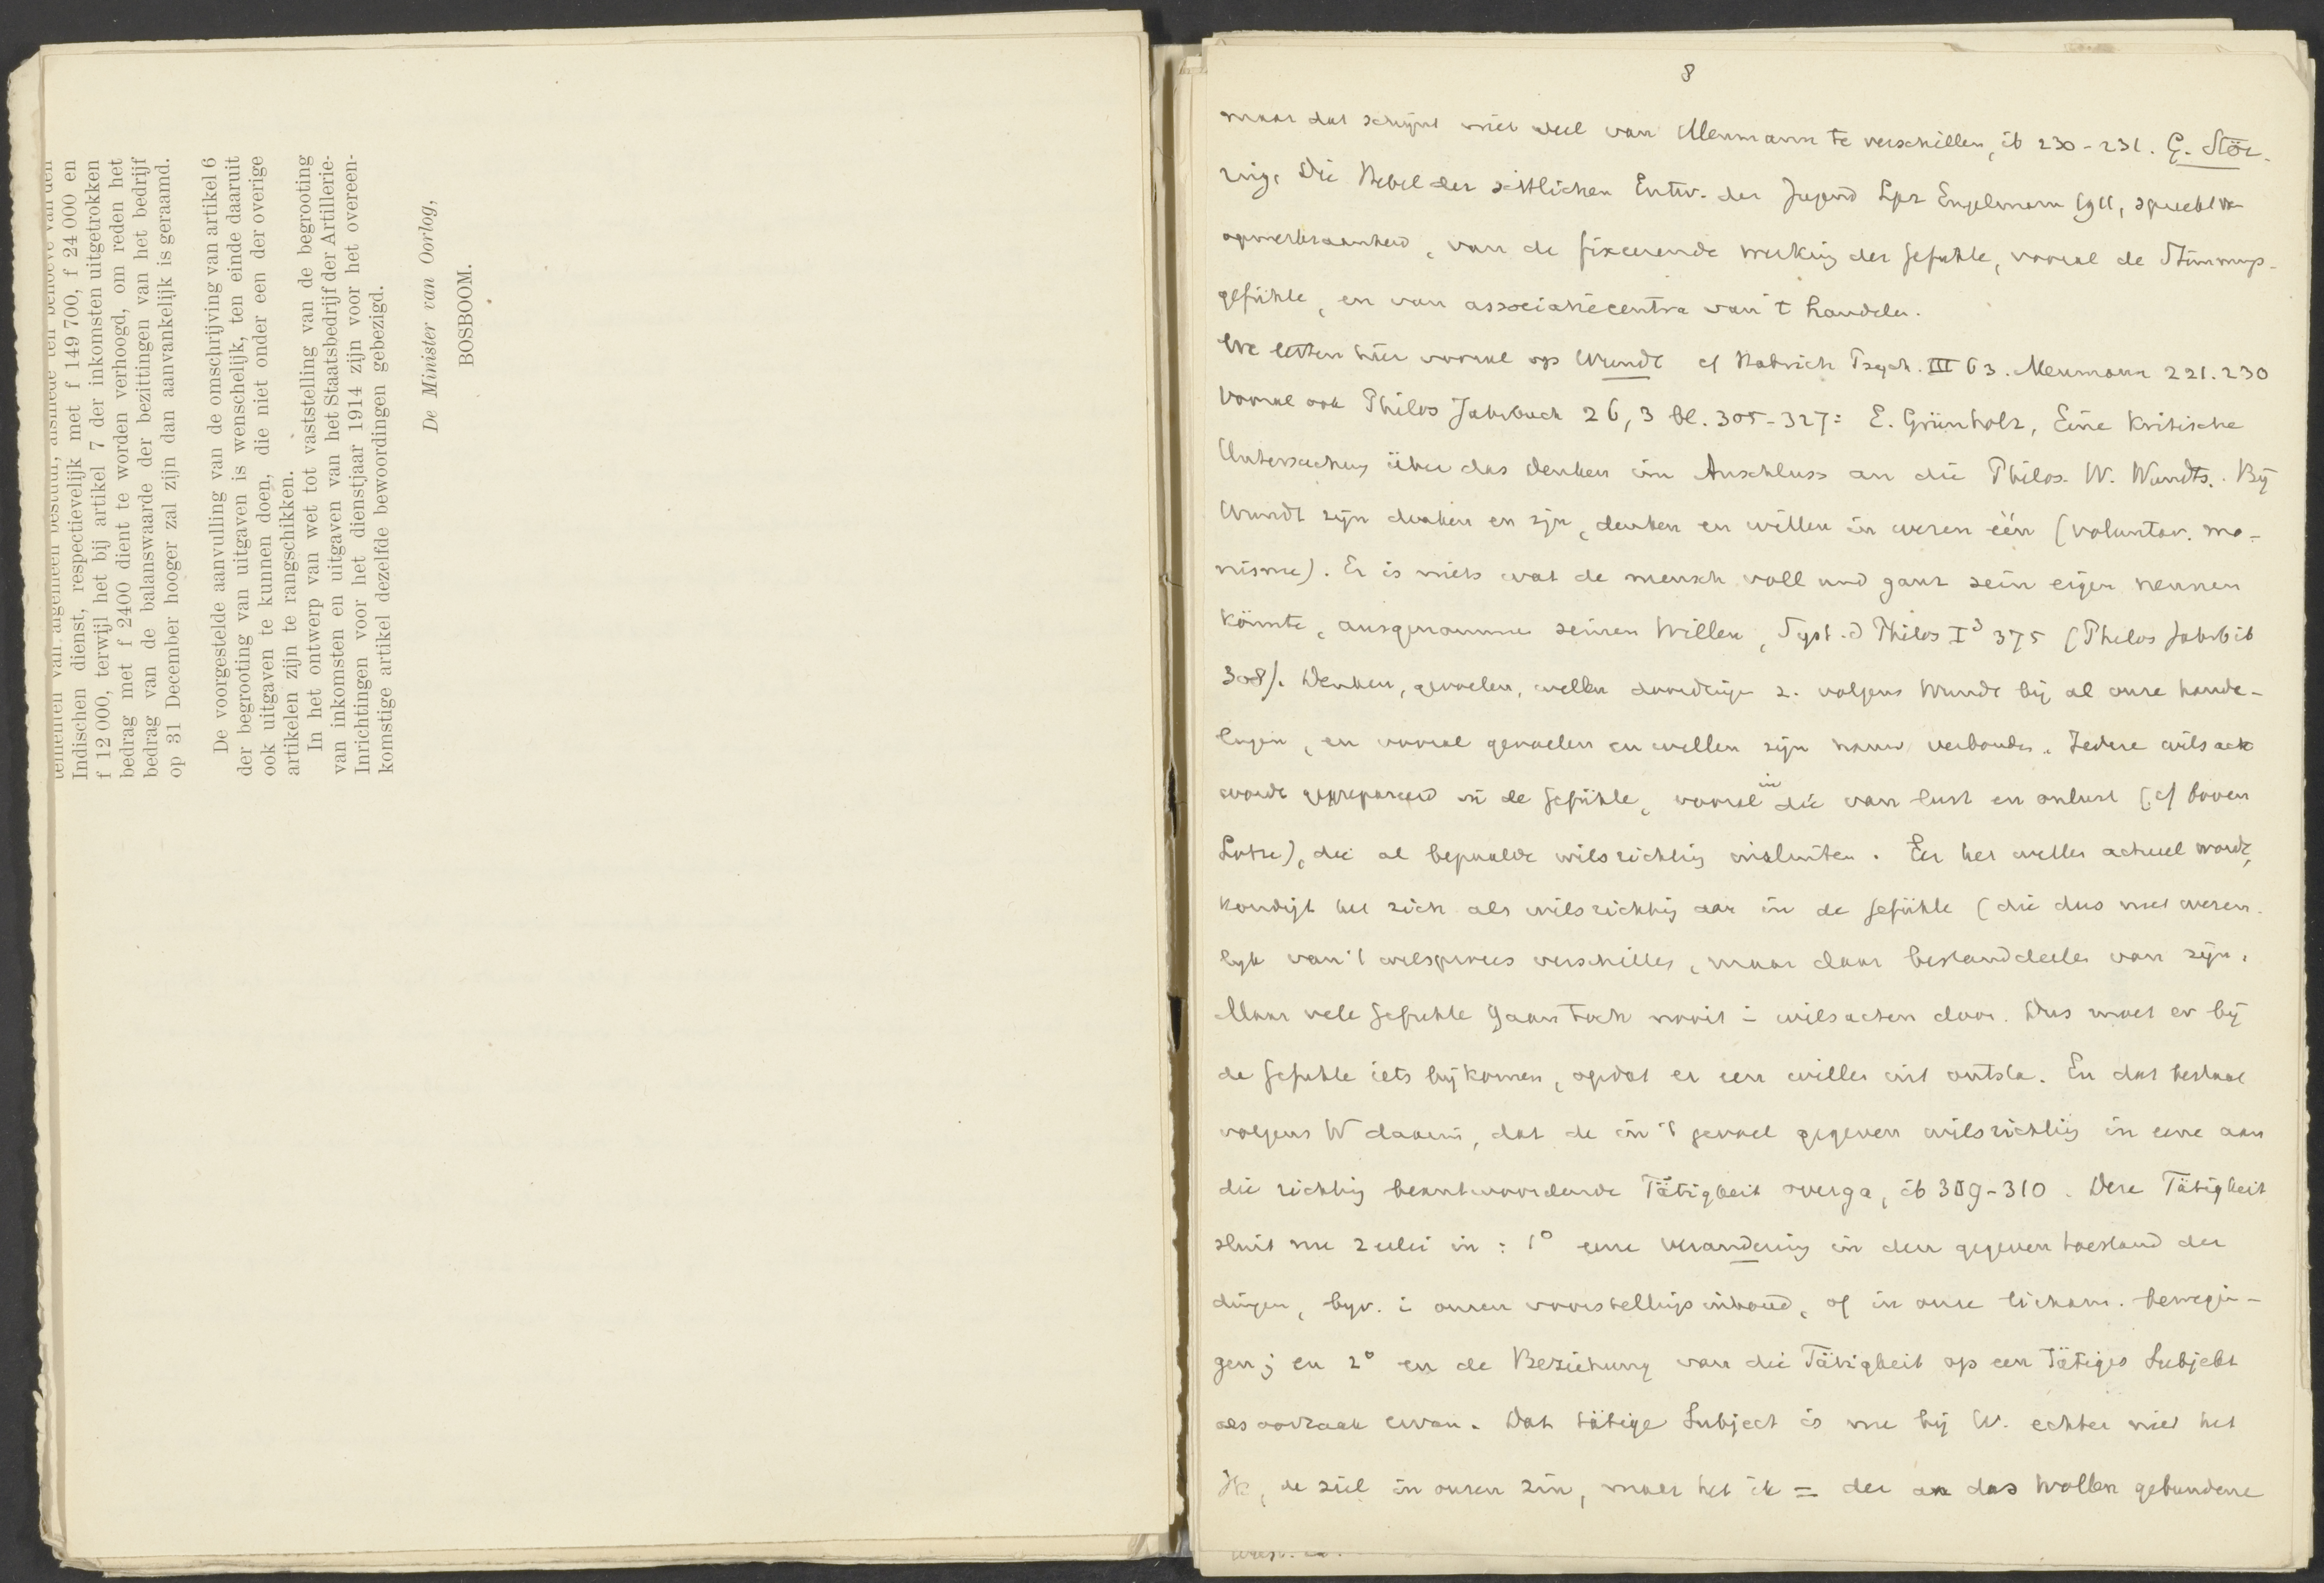 temenen van algemeen bestuur, alsmede ten behoeve van den
Indischen dienst, respectievelijk met f 149 700, f 24 000 en
f 12 000, terwijl het bij artikel 7 der inkomsten uitgetrokken
bedrag met f 2400 dient te worden verhoogd, om reden het
bedrag van de balanswaarde der bezittingen van het bedrijf
op 31 December hooger zal zijn dan aanvankelijk is geraamd.
De voorgestelde aanvulling van de omschrijving van artikel 6
der begrooting van uitgaven is wenschelijk, ten einde daaruit
ook uitgaven te kunnen doen, die niet onder een der overige
artikelen zijn te rangschikken.
In het ontwerp van wet tot vaststelling van de begrooting
van inkomsten en uitgaven van het Staatsbedrijf der Artillerie-
Inrichtingen voor het dienstjaar 1914 zijn voor het overeen-
komstige artikel dezelfde bewoordingen gebezigd.
De Minister van Oorlog,
BOSBOOM.
8
maar dat schijnt niet veel van Meumann te verschillen, ib 230-231. G. Stör-
ring, Die Hebel der sittlichen Entw. der Jugend Lpz Engelmann 1911, spreekt v
opmerkzaamheid, van de fixeerende werking der Gefühle, vooral de Stimmungs-
gefühle, en van associatiecentra van 't handelen.
We letten hier vooral op Wundt cf Habrich Psych. III 63. Meumann 221. 230
vooral ook Philos Jahrbuch 26, 3 bl. 305-327: E. Grünholz, Eine Kritische
Untersuchung über das Denken im Anschluss an die Philos. W. Wundts. Bij
Wundt zijn denken en zijn, denken en willen in wezen één (voluntar. mo-
nisme). Er is niets wat de mensch voll und ganz sein eigen nennen
könnte, ausgenommen seinen Willen, Syst. d Philos I³ 375 (Philos Jahrb ib
308). Denken, gevoelen, willen doordringen z. volgens Wundt bij al onze hande-
lingen, en vooral gevoelen en willen zijn nauw verbonden. Iedere wilsact
wordt geprepareerd in de Gefühle, vooral in die van lust en onlust (cf boven
Lotze), die al bepaalde wilsrichting insluiten. Eer het willen actueel wordt,
kondigt het zich als wilsrichting aan in de Gefühle (die dus niet wezen-
lijk van 't wilsproces verschillen, maar daar bestanddeelen van zijn.
Maar vele Gefühle gaan toch nooit i wilsacten door. Dus moet er bij
de Gefühle iets bijkomen, opdat er een willen uit ontsta. En dat bestaat
volgens W daarin, dat de in 't gevoel gegeven wilsrichting in eene aan
die richting beantwoordende Tätigkeit overga, ib 309-310. Deze Tätigkeit
sluit nu 2 erlei in: 1° eene verandering in den gegeven toestand der
dingen, bijv. i onzen voorstellingsinhoud, of in onze lichaam. bewegin-
gen; en 2° en de Beziehung van die Tätigkeit op een tätiges Subjekt
als oorzaak ervan. Dat tätige Subject is nu bij W. echter niet het
ik, de ziel in onzen zin, maar het ik = der an das Wollen gebundene